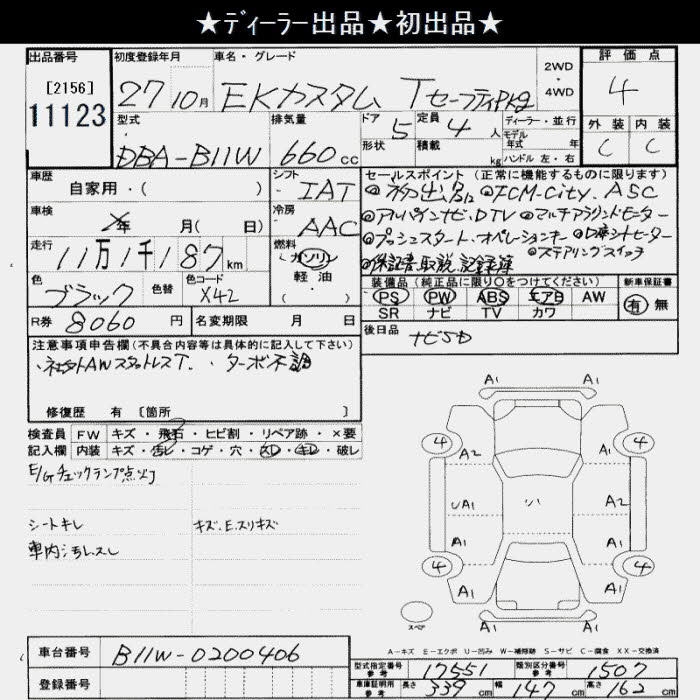 ★ディーラー出品★初出品★
出品番号
[2156]
11123
初度登録年月
27 10月
車名・グレード
EKカスタム Tセーフティpkg
2WD
・
4WD
評価点
4
外装 内装
C C
型式
DBA-B11W
排気量
660cc
ドア 5
形状
定員 4人
積載 kg
ディーラー・並行
モデル
年式 年
ハンドル 左・右
車歴
自家用・( )
シフト
IAT
車検
年 月( 日)
冷房
AAC
走行
11万1千187km
燃料
ガソリン
軽・油
色
ブラック
色替
色コード
X42
R券 8060円
名変期限 月 日
セールスポイント(正常に機能するものに限ります)
◎初出品 ◎FCM-City.ASC
◎アルパインナビ.DTV ◎マルチアラウンドモニター
◎プッシュスタート.オペレーションキー ◎D席シートヒーター
◎保証書.取説.記録簿 ◎ステアリングスイッチ
装備品(純正品に限り○をつけてください)
PS PW ABS エアB AW
SR ナビ TV カワ
新車保証書
有 無
後日品 ナビSD
注意事項申告欄(不具合内容等は具体的に記入して下さい)
・社外AWスタットレスT. ・ターボ不調
修復歴 有 [箇所 ]
検査員 FW キズ・飛石・ヒビ割・リペア跡・×要
記入欄 内装 キズ・汚レ・コゲ・穴・スレ・キレ・破レ
E/Gチェックランプ点灯
シートキレ キズ.E.スリキズ
車内汚レスレ
A1 A1
A1 A1
4 4
A2 A1
UA1 リハ A2
A1 A1
4 4
A1 A1
A1
スペア
A-キズ E-エクボ U-凹み W-補修跡 S-サビ C-腐食 XX-交換済
車台番号 B11W-0200406
登録番号
型式指定番号 参考 17551
類別区分番号 参考 1507
車庫証明用 参考 長さ 339cm 幅 147cm 高さ 162cm